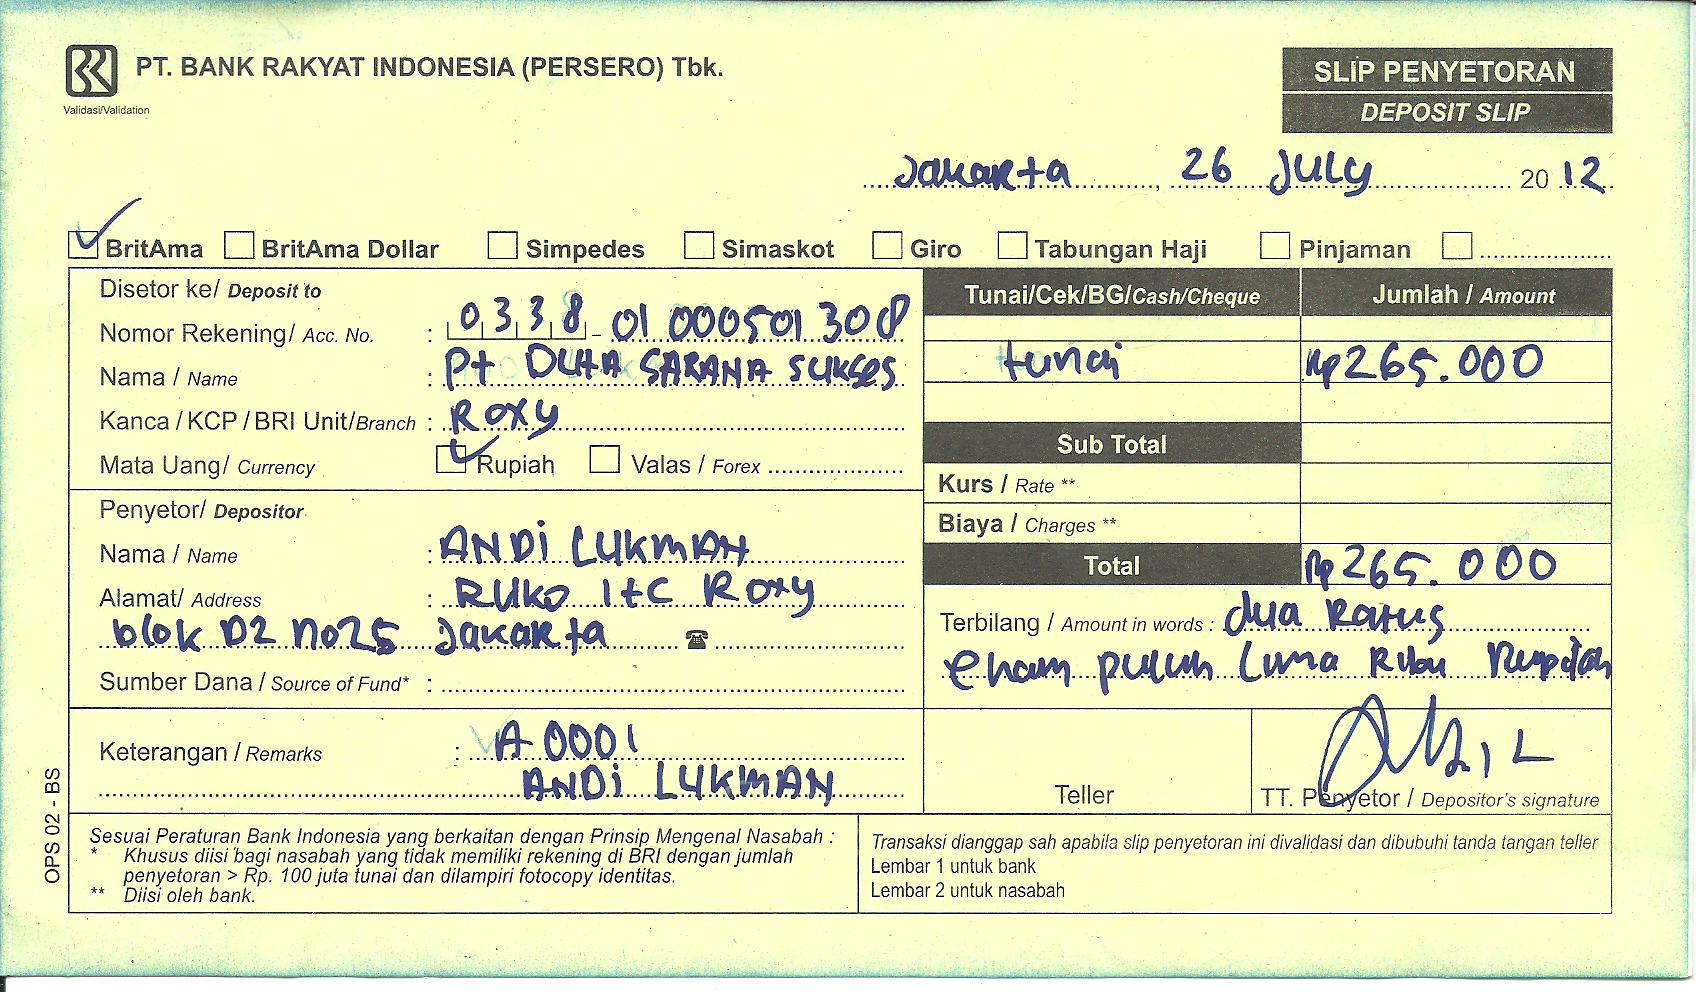 PT. BANK RAKYAT INDONESIA (PERSERO) Tbk.
Validasi/Validation
SLIP PENYETORAN
DEPOSIT SLIP
Jakarta, 26 JULy 2012
BritAma BritAma Dollar Simpedes Simaskot Giro Tabungan Haji Pinjaman
Disetor ke/ Deposit to
Nomor Rekening/ Acc. No. : 0338-01 000501 308
Nama / Name : Pt DUTA SARANA SUKSES
Kanca / KCP / BRI Unit/Branch : ROXY
Mata Uang/ Currency Rupiah Valas / Forex
Penyetor/ Depositor
Nama / Name : ANDi LUKMAN
Alamat/ Address : RUKO ITC ROXY
blok D2 no25 Jakarta
Sumber Dana / Source of Fund* :
Keterangan / Remarks : A 0001
ANDi LUKMAN
Tunai/Cek/BG/Cash/Cheque Jumlah / Amount
tunai Rp265.000
Sub Total
Kurs / Rate **
Biaya / Charges **
Total Rp265.000
Terbilang / Amount in words : dua Ratus
enam puluh Lima Ribu Rupiah
Teller
TT. Penyetor / Depositor's signature
OPS 02 - BS
Sesuai Peraturan Bank Indonesia yang berkaitan dengan Prinsip Mengenal Nasabah :
* Khusus diisi bagi nasabah yang tidak memiliki rekening di BRI dengan jumlah
penyetoran > Rp. 100 juta tunai dan dilampiri fotocopy identitas.
** Diisi oleh bank.
Transaksi dianggap sah apabila slip penyetoran ini divalidasi dan dibubuhi tanda tangan teller
Lembar 1 untuk bank
Lembar 2 untuk nasabah